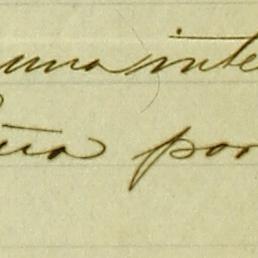 una inte
ua por